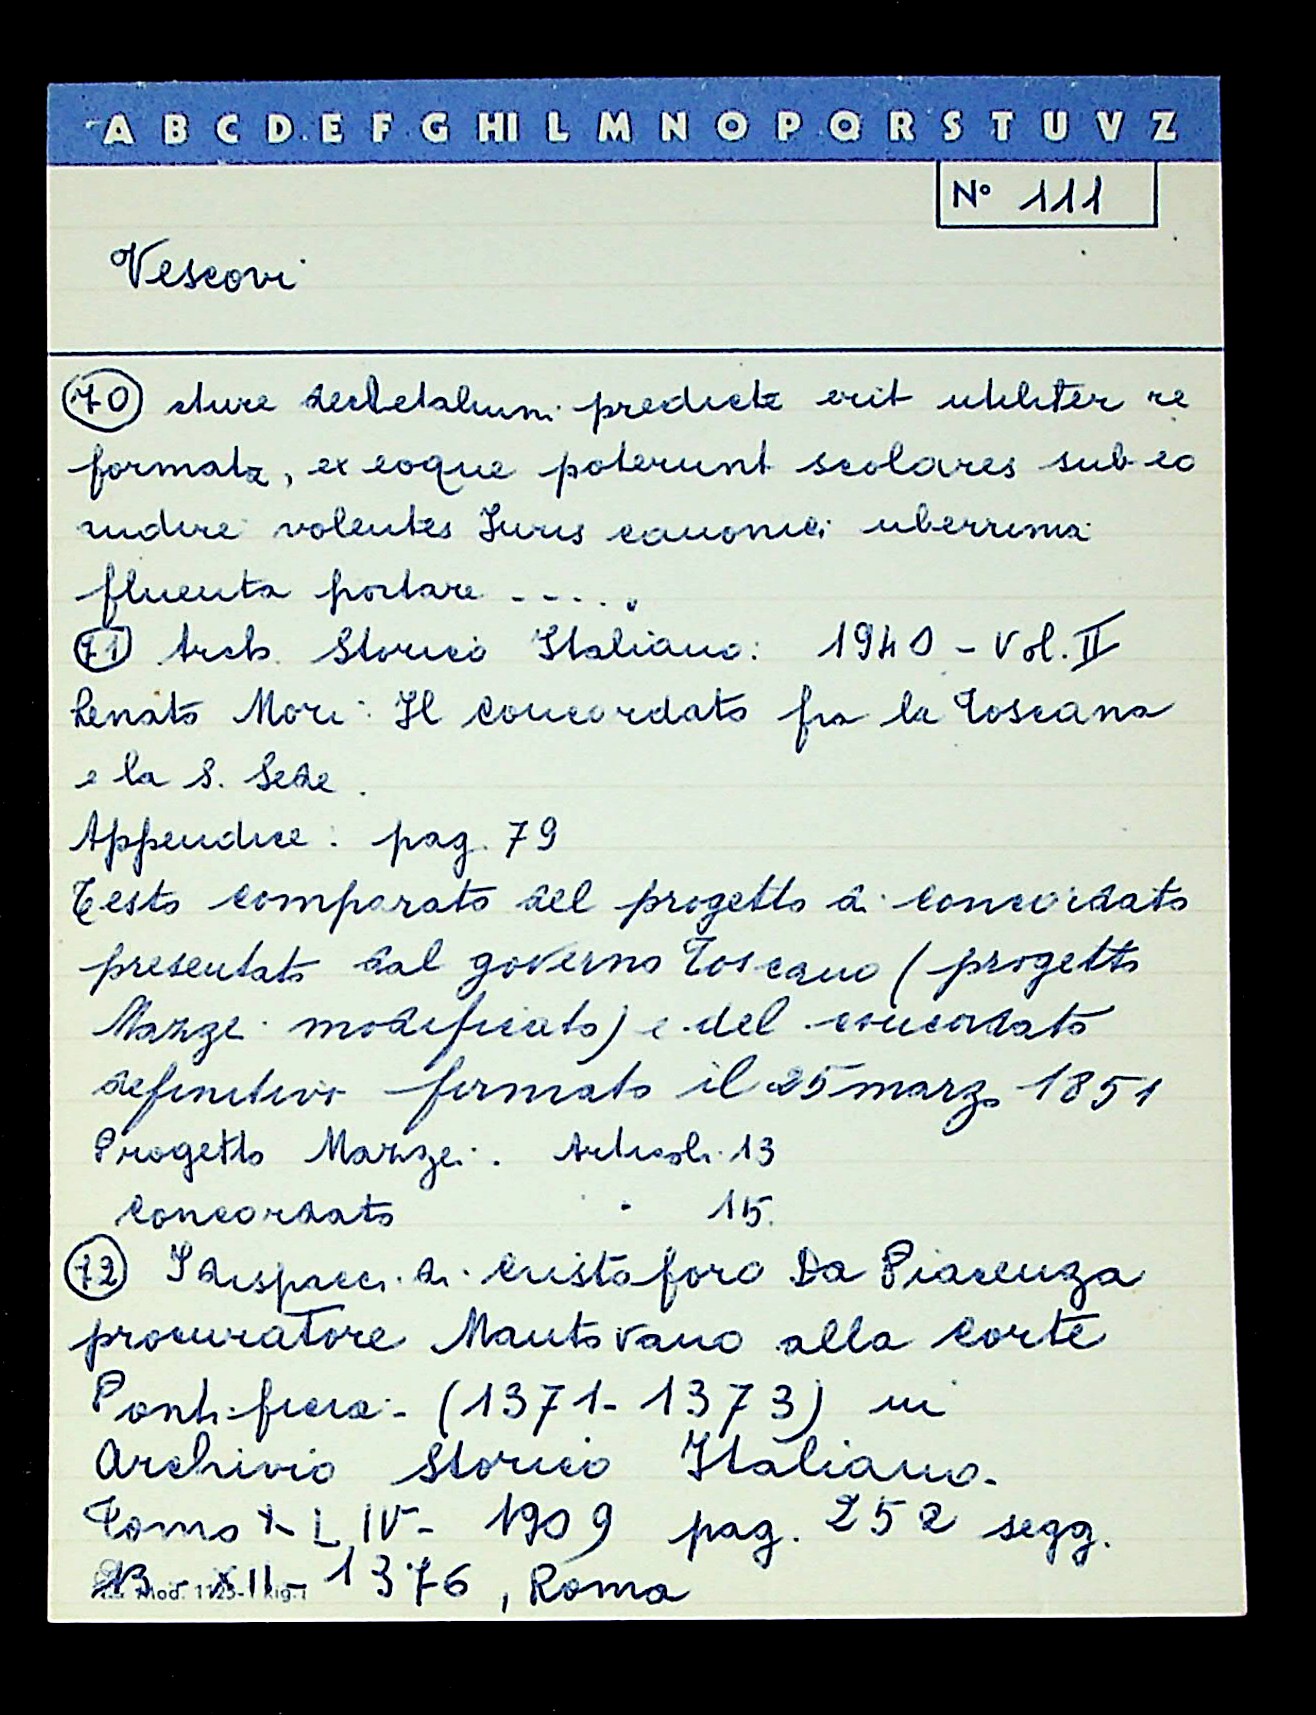 A B C D E F G HI L M N O P Q R S T U V Z
N° 111
Vescovi
70 cture decretalium predicte erit utiliter re
formata, ex eoque poterunt scolares sub eo
audire volentes Juris canonici uberrima
fluenta portare .....
71 Arch. Storico Italiano: 1940 - Vol. II
Renato Mori: Il Concordato fra la Toscana
e la S. Sede.
Appendice: pag. 79
Testo comparato del progetto di concordato
presentato dal governo Toscano (progetto
Mazzei modificato) e del concordato
definitivo firmato il 25 marzo 1851
Progetto Mazzei. Articoli 13
Concordato " 15.
72 I dispacci di Cristoforo Da Piacenza
procuratore Mantovano alla Corte
Pontificia - (1371-1373) in
Archivio Storico Italiano.
Tomo XLIV - 1909 pag. 252 segg.
XII - 1376, Roma